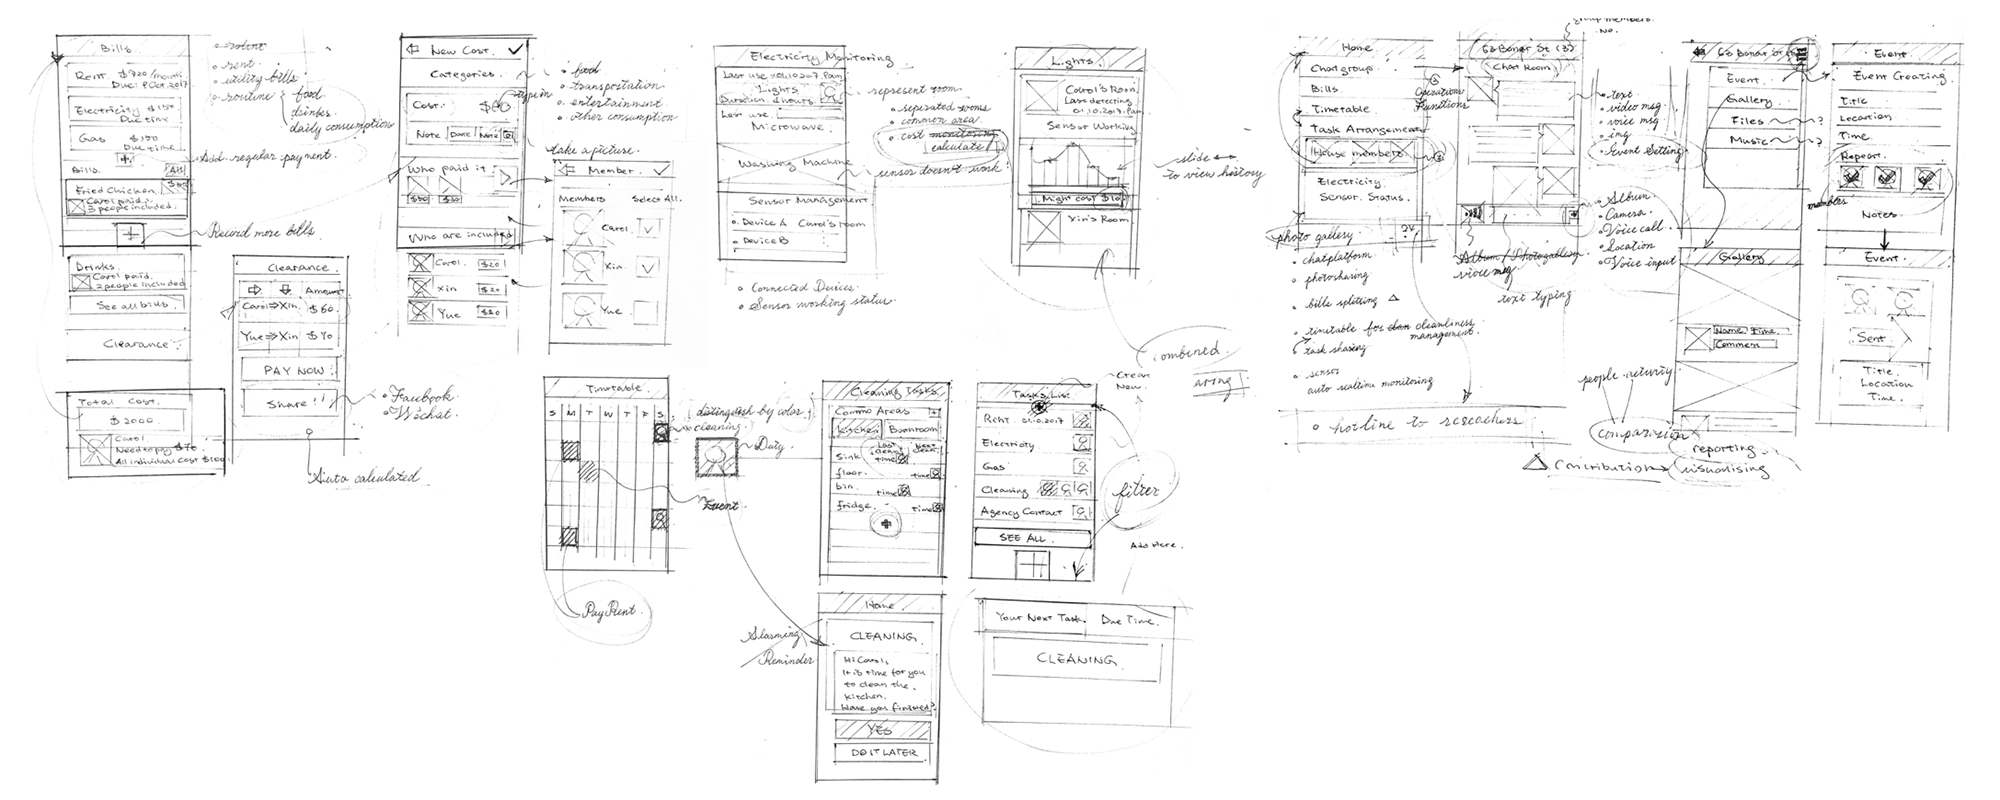 Bills
Rent. $720/month
Due: 9 Oct. 2017
Electricity $150
Due time
Gas $150
Due time.
Bills. All
Fried Chicken.
Carol paid.
3 people included.
rent
utility bills
routine
food
drinks
daily consumptions
Add regular payment.
Record more bills.
Drinks.
Carol paid.
2 people included
See all bills
Clearance
Total Cost.
$2000
Carol
Need to pay $70
All individual cost $1001
Clearance.
Amount
Carol⇒Xin $60
Yue⇒Xin $70
PAY NOW
Share!!
Facebook
Wechat.
Auto calculated
New Cost.
Categories
Cost.
type in
Note Date Note
Who paid it.
$50 $30
Who are included
Carol. $20
Xin $20
Yue $20
food
transportation
entertainment
other consumption
take a picture.
Member.
Members Select All.
Carol.
Xin
Yue
Electricity Monitoring
Lights
Last use
Microwave.
Washing Machine
Sensor Management.
Device A Carol's room
Device B
represent room.
seperated rooms
common area
cost monitoring
calculate
sensor doesn't work.
Connected Devices.
Sensor working status.
Lights.
Carol's Room
Last detecting
01.10.2017.
Sensor Working
Might cost $10
Xin's Room
slide ↔
to view history
combined.
Timetable.
S M T W T F S
distinguish by color
no cleaning.
Duty.
Event
Pay Rent.
Cleaning Tasks.
Commo Areas +
Kitchen Bathroom
Last clean time
Next clean.
Sink
floor. time
bin. time
fridge. time
Create New.
Tasks List
Rent 01.10.2017
Electricity
Gas
Cleaning
Agency Contact
SEE ALL.
filter
Add Here.
Home
CLEANING.
Hi Carol,
It is time for you
to clean the
kitchen.
Have you finished?
YES
DO IT LATER
Alarming
Reminder
Your Next Task. Due Time.
CLEANING.
Home
Chat group
Bills.
Timetable
Task Arrangement
House members
Electricity.
Sensor. Status.
Operation
Functions
photo gallery.
chat platform
photo sharing
bills splitting △
timetable for cleanliness
management.
task sharing
sensor
auto realtime monitoring
hotline to reseachers
group members.
No.
63 Bonar St (3)
Chat Room
text
video msg
voice msg
img
Event Setting
Album.
Camera.
Voice call.
Location
Voice input
Album/Photo gallery
voice msg
text typing
63 Bonar St
Event.
Gallery.
Files ?
Music ?
Gallery
Name. Time.
Comment
people activity
comparision
reporting.
△ Contribution → visualising
Event
Event Creating
Title
Location
Time.
Repeat.
Notes.
Event.
Sent.
Title.
Location
Time.